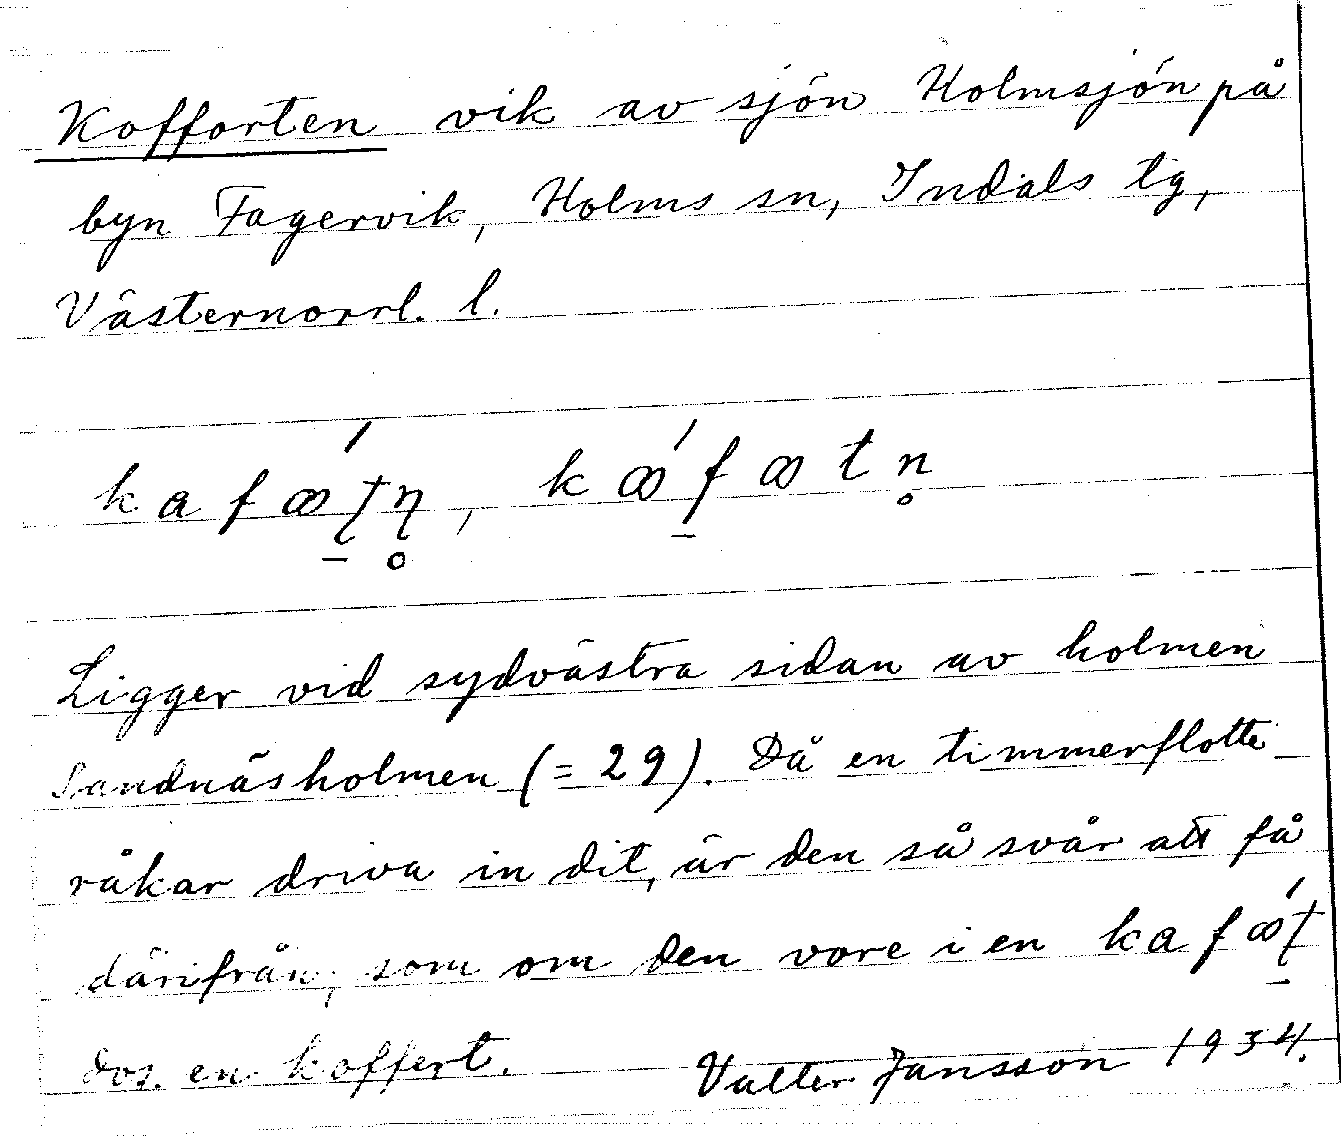 Kofforten vik av sjön Holmsjön på
byn Fagervik, Holms sn, Indals tg,
Västernorrl. l.
kafꝏ́ʈɳ̥, kꝏ́fꝏtn̥
Ligger vid sydvästra sidan av holmen
Sandnäsholmen (=29). Då en timmerflotte
råkar driva in dit, är den så svår att få
därifrån, som om den vore i en kafꝏ́ʈ
dvs. en koffert. Valter Jansson 1934.